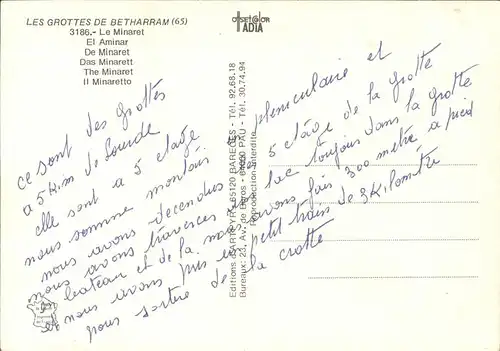 LES GROTTES DE BETHARRAM (65)
3186.- Le Minaret
El Aminar
De Minaret
Das Minarett
The Minaret
Il Minaretto
offset color
IADIA
ce sont des grottes
a 5 k.m de Lourde
elle sont a 5 etage
nous somme montair
nous avons decendus
nous avons traverces
bateau et de la
et nous avons pris un petit train de 3 kilomètre
pour sortire de la crotte
pleniculaire et
5 etage de la grotte
lac toujour dans la grotte
avons fais 300 metre a pied
Editions 65120 BAREGES - Tél. 92.68.18
Bureaux: 23, Av. de Buros - 64000 PAU - Tél. 30.74.94
Reproduction interdite